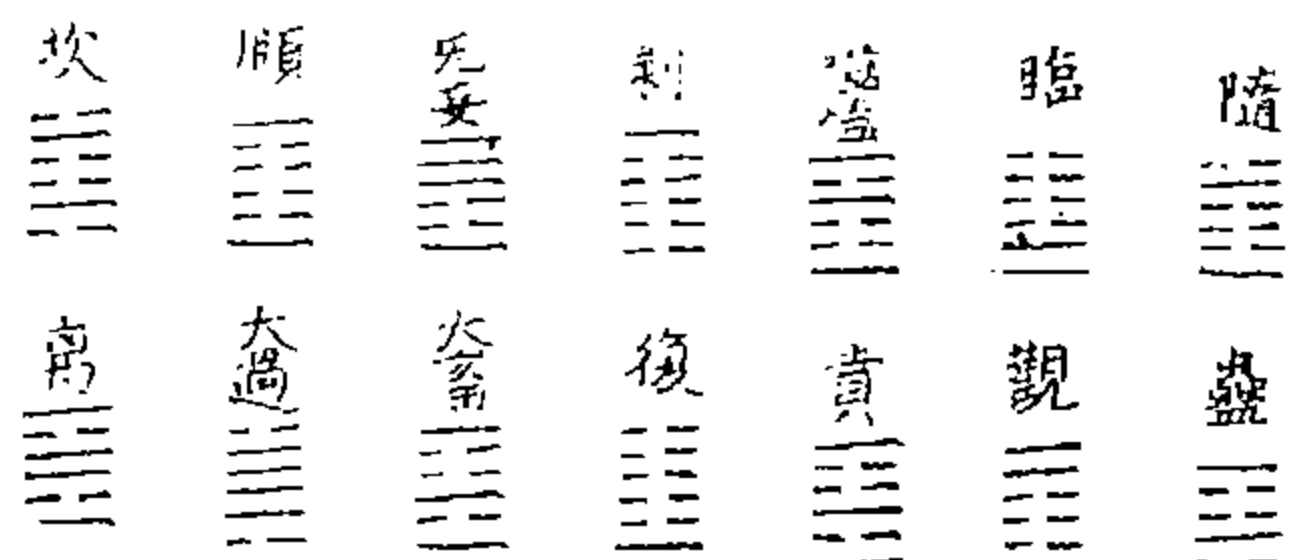 隨
蠱
臨
觀
噬嗑
賁
剥
復
无妄
大畜
頤
大過
坎
离